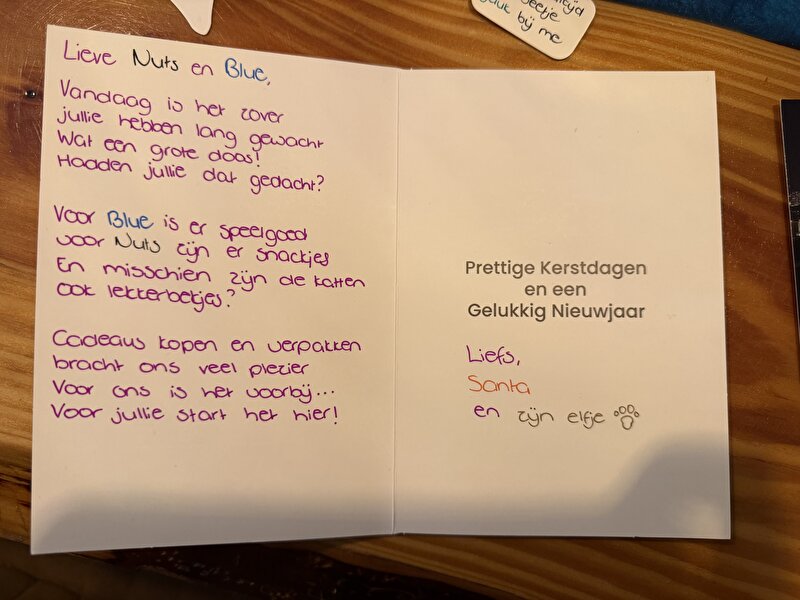 Lieve Nuts en Blue,
Vandaag is het zover
jullie hebben lang gewacht
Wat een grote doos!
Hadden jullie dat gedacht?
Voor Blue is er speelgoed
voor Nuts zijn er snackjes
En misschien zijn de katten
ook lekkerbekjes?
Cadeaus kopen en verpakken
bracht ons veel plezier
Voor ons is het voorbij...
Voor jullie start het hier!
Prettige Kerstdagen
en een
Gelukkig Nieuwjaar
Liefs,
Santa
en zijn elfje
bij me